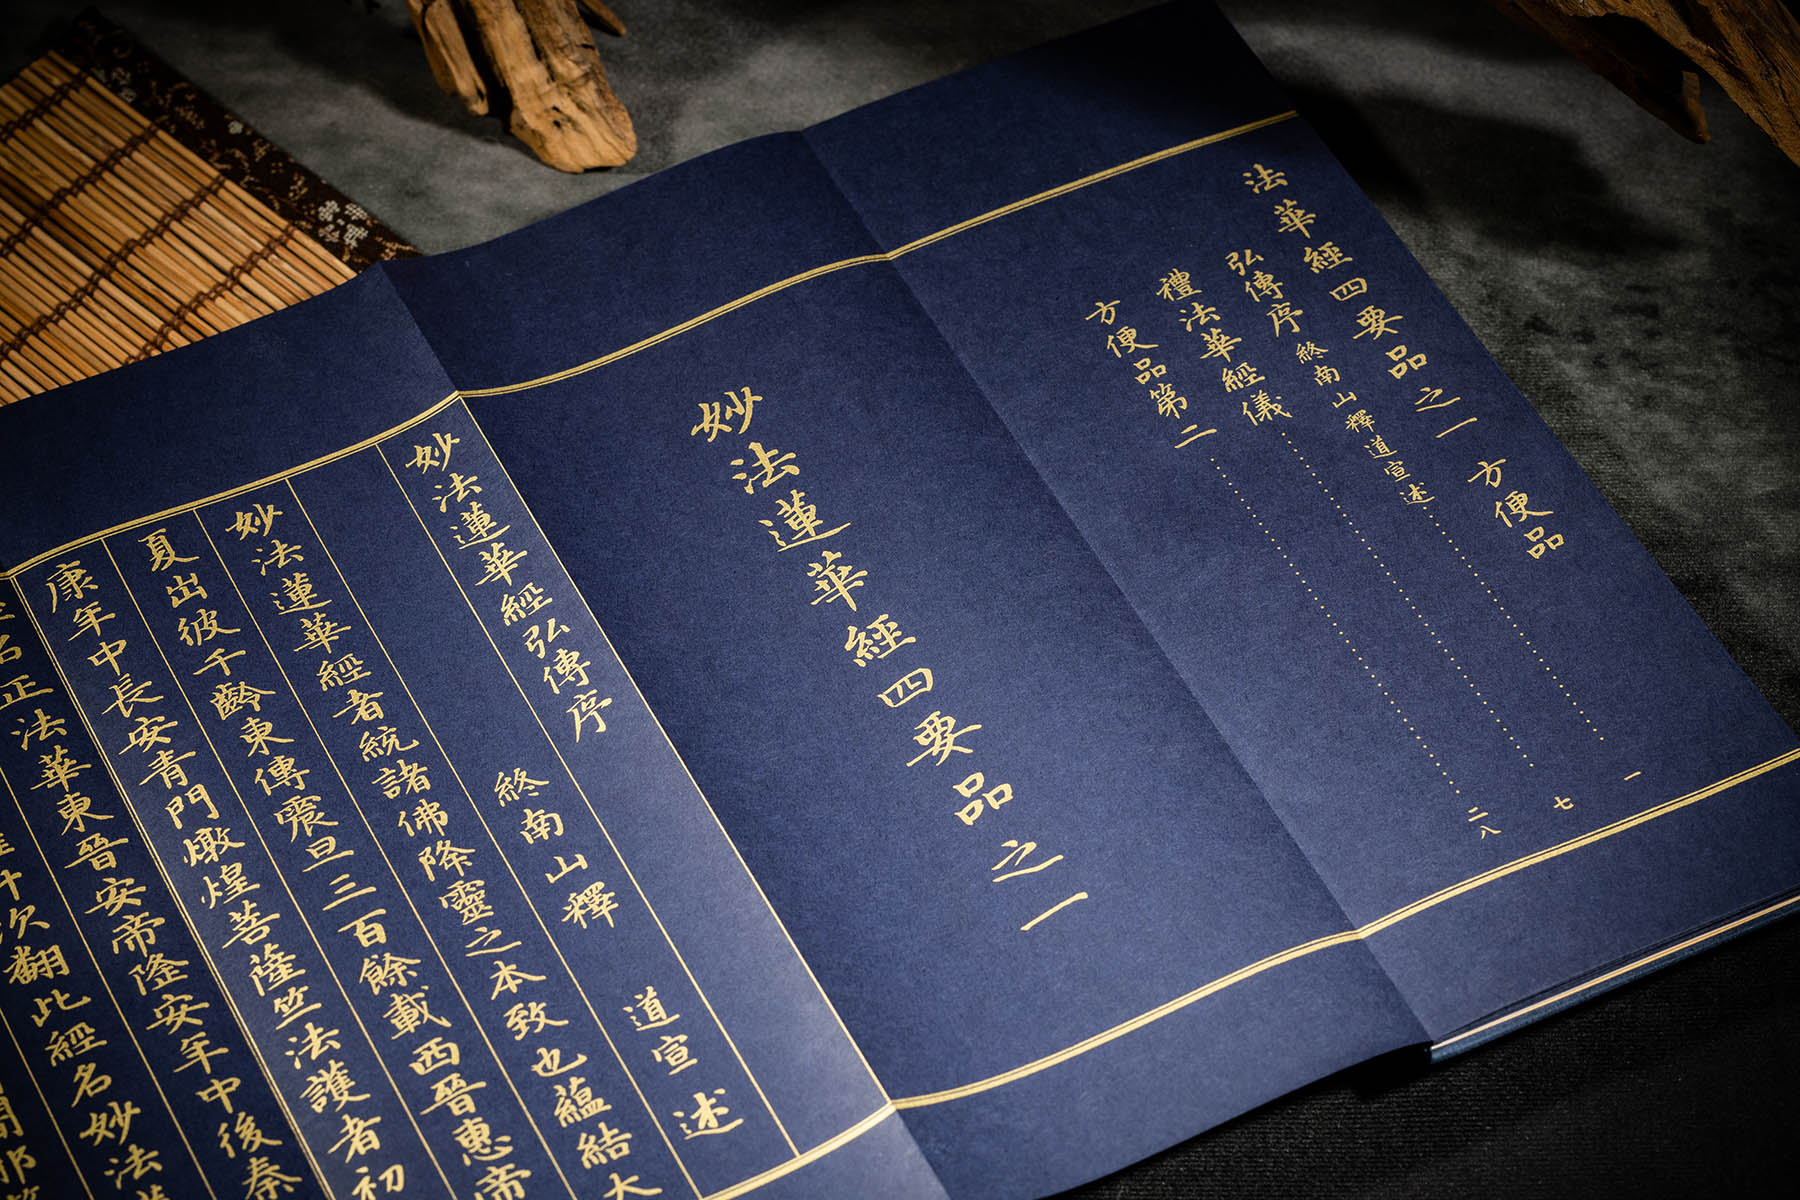 法華經四要品之一 方便品
弘傳序 終南山 釋道宣述 一
禮法華經儀 七
方便品第二 二八
妙法蓮華經四要品之一
妙法蓮華經弘傳序
終南山釋 道宣 述
妙法蓮華經者統諸佛降靈之本致也蘊結大
夏出彼千齡東傳震旦三百餘載西晉惠帝
康年中長安青門燉煌菩薩竺法護者初
名正法華東晉安帝隆安年中後秦
次翻此經名妙法